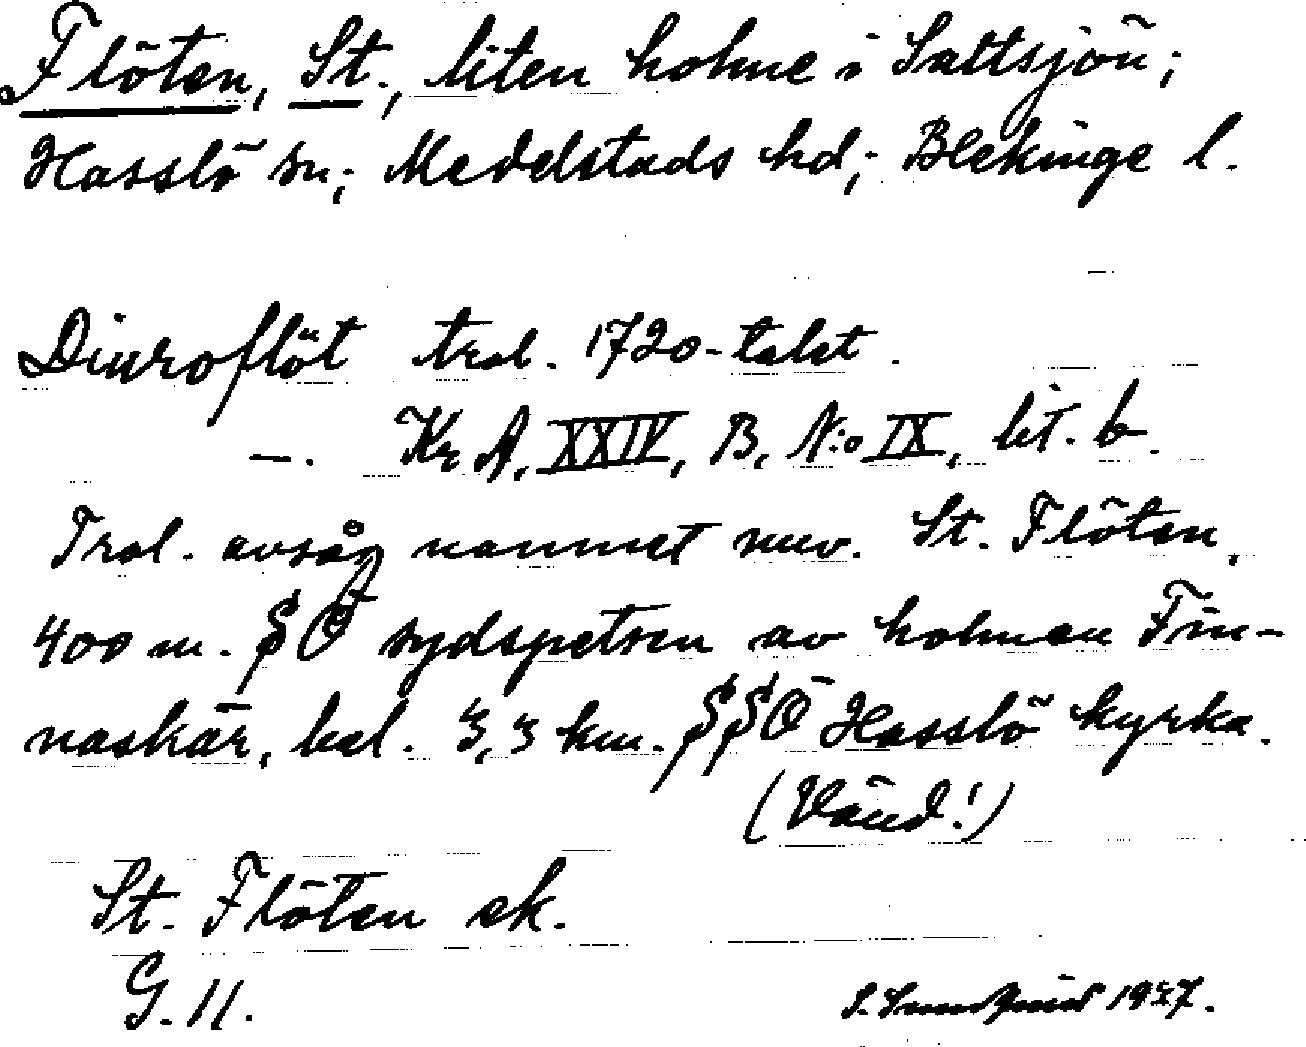 Flöten, St., liten holme i Saltsjön;
Hasslö sn; Medelstads hd; Blekinge l.
Diuroflöt trol. 1720-talet.
—. Kr A, XXIV, B, N:o IX, lit. b.
Trol. avsåg namnet nuv. St. Flöten,
400 m. SO sydspetsen av holmen Fin-
naskär, bel. 3,3 km. SSO Hasslö kyrka.
(Vänd!)
St. Flöten ek.
G. 11.
S. 1927.